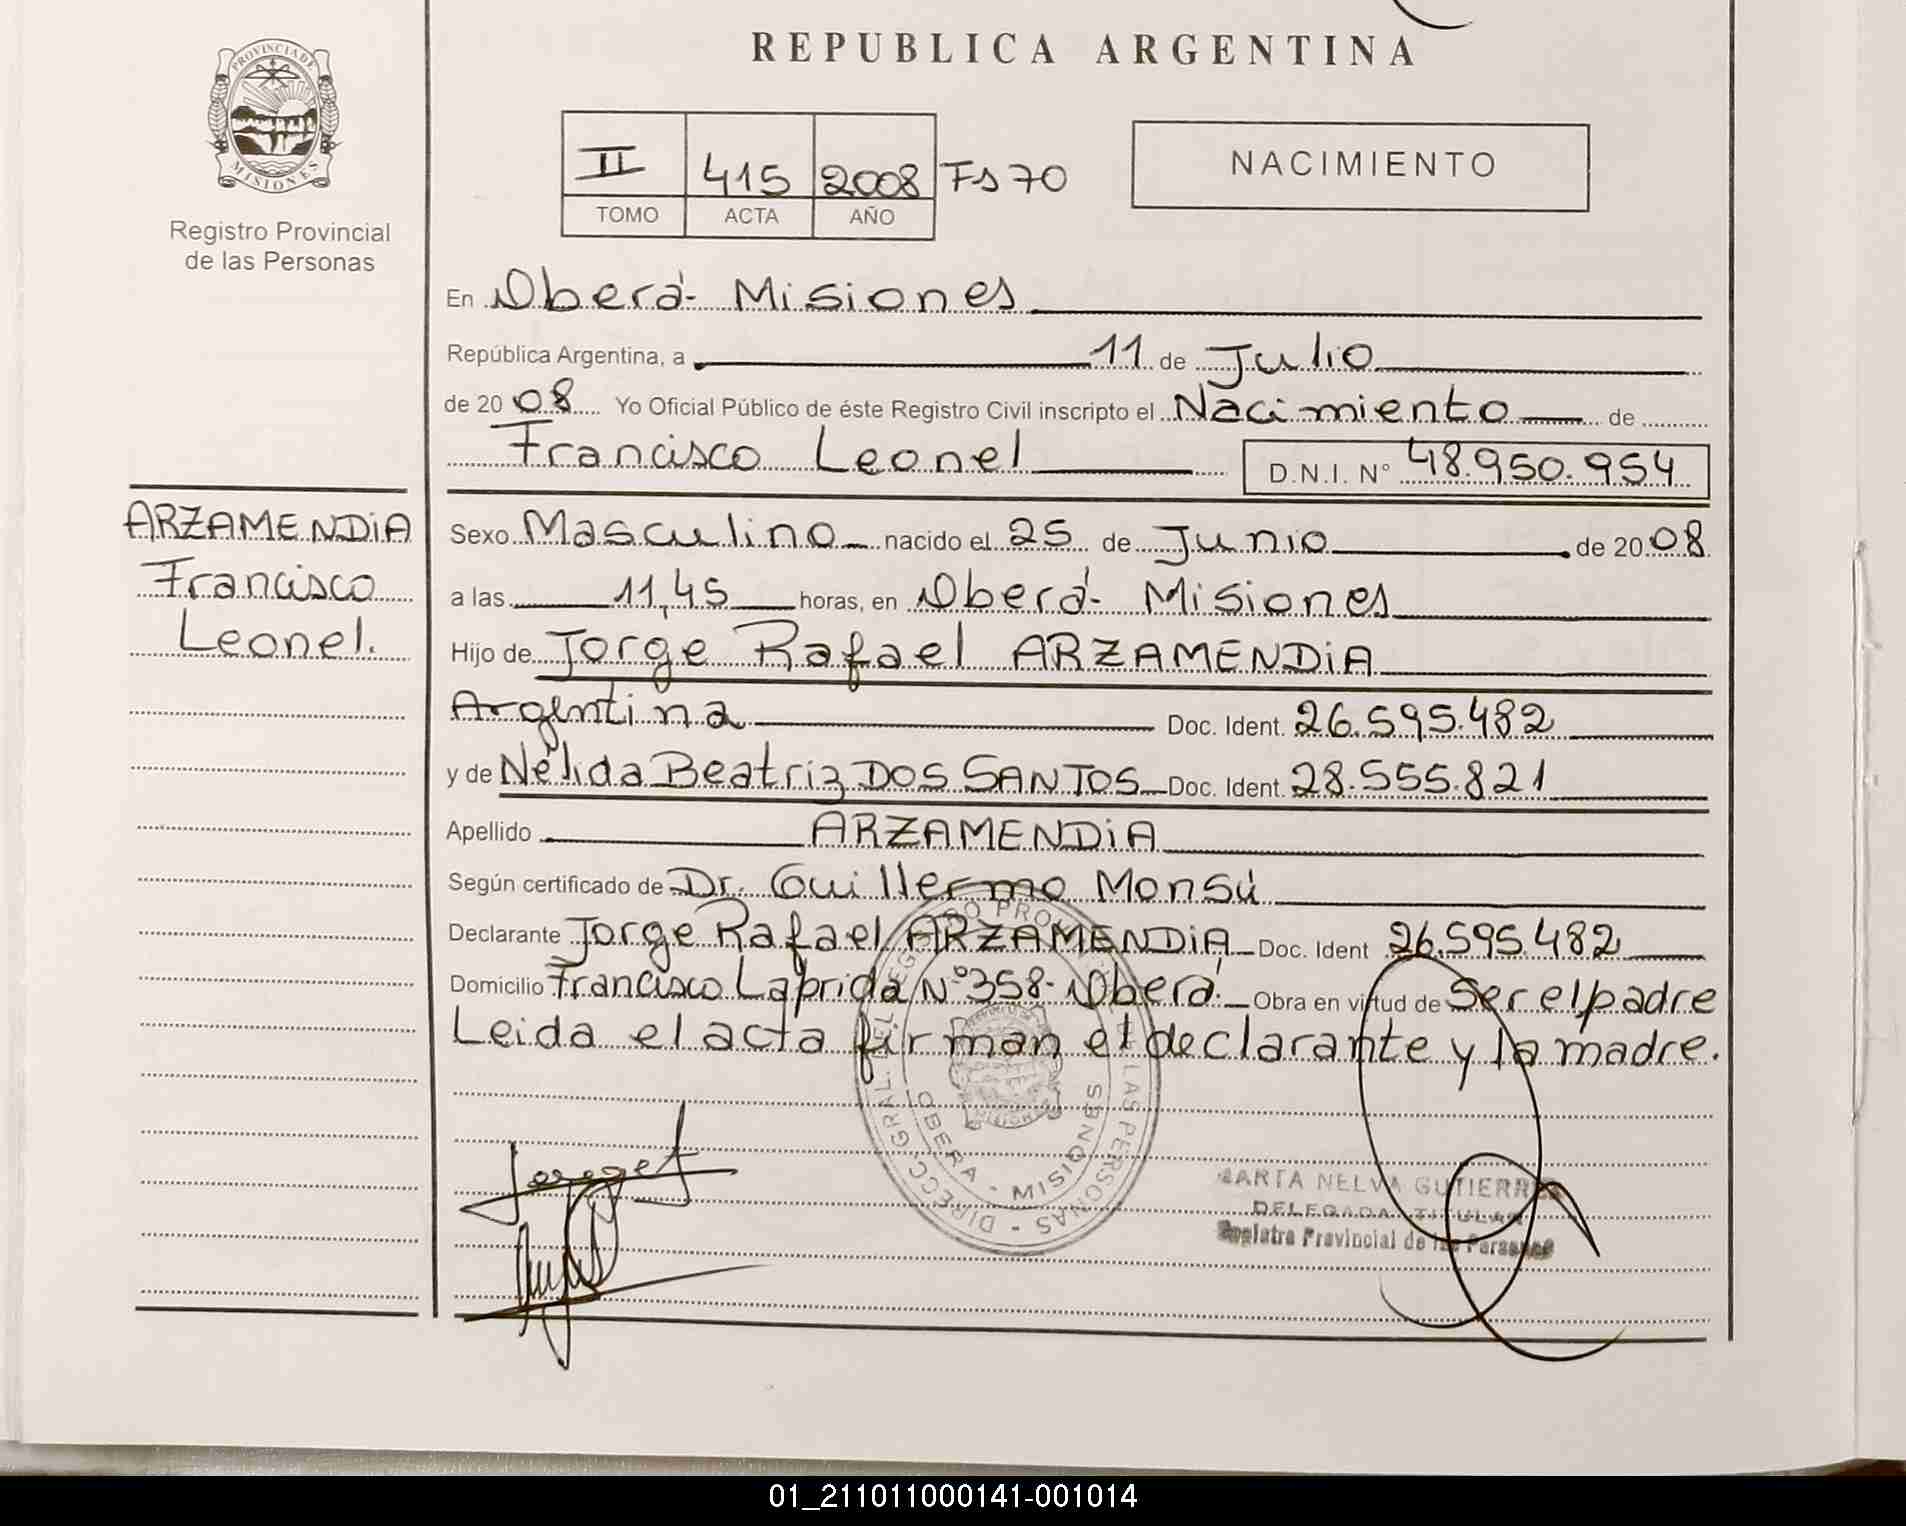 REPUBLICA ARGENTINA
PROVINCIA DE
MISIONES
Registro Provincial
de las Personas
II 415 2008 Fs 70
TOMO ACTA AÑO
NACIMIENTO
En Oberá- Misiones
República Argentina, a 11 de Julio
de 20 08 Yo Oficial Público de éste Registro Civil inscripto el Nacimiento de
Francisco Leonel D.N.I. Nº 48.950.954
ARZAMENDiA
Francisco
Leonel.
Sexo Masculino nacido el 25 de Junio de 20 08
a las 11,45 horas, en Oberá- Misiones
Hijo de Jorge Rafael ARZAMENDiA
Argentina Doc. Ident. 26.595.482
y de Nélida Beatriz DOS SANTOS Doc. Ident. 28.555.821
Apellido ARZAMENDiA
Según certificado de Dr. Guillermo Monsú
Declarante Jorge Rafael ARZAMENDiA Doc. Ident 26.595.482
Domicilio Francisco Laprida Nº 358- Oberá- Obra en virtud de Ser el padre
Leida el acta firman el declarante y la madre.
DIRECC. GRAL. DEL REGISTRO PROV. DE LAS PERSONAS
OBERA - MISIONES
MARTA NELVA GUTIERREZ
DELEGADA TITULAR
Registro Provincial de las Personas
01_211011000141-001014